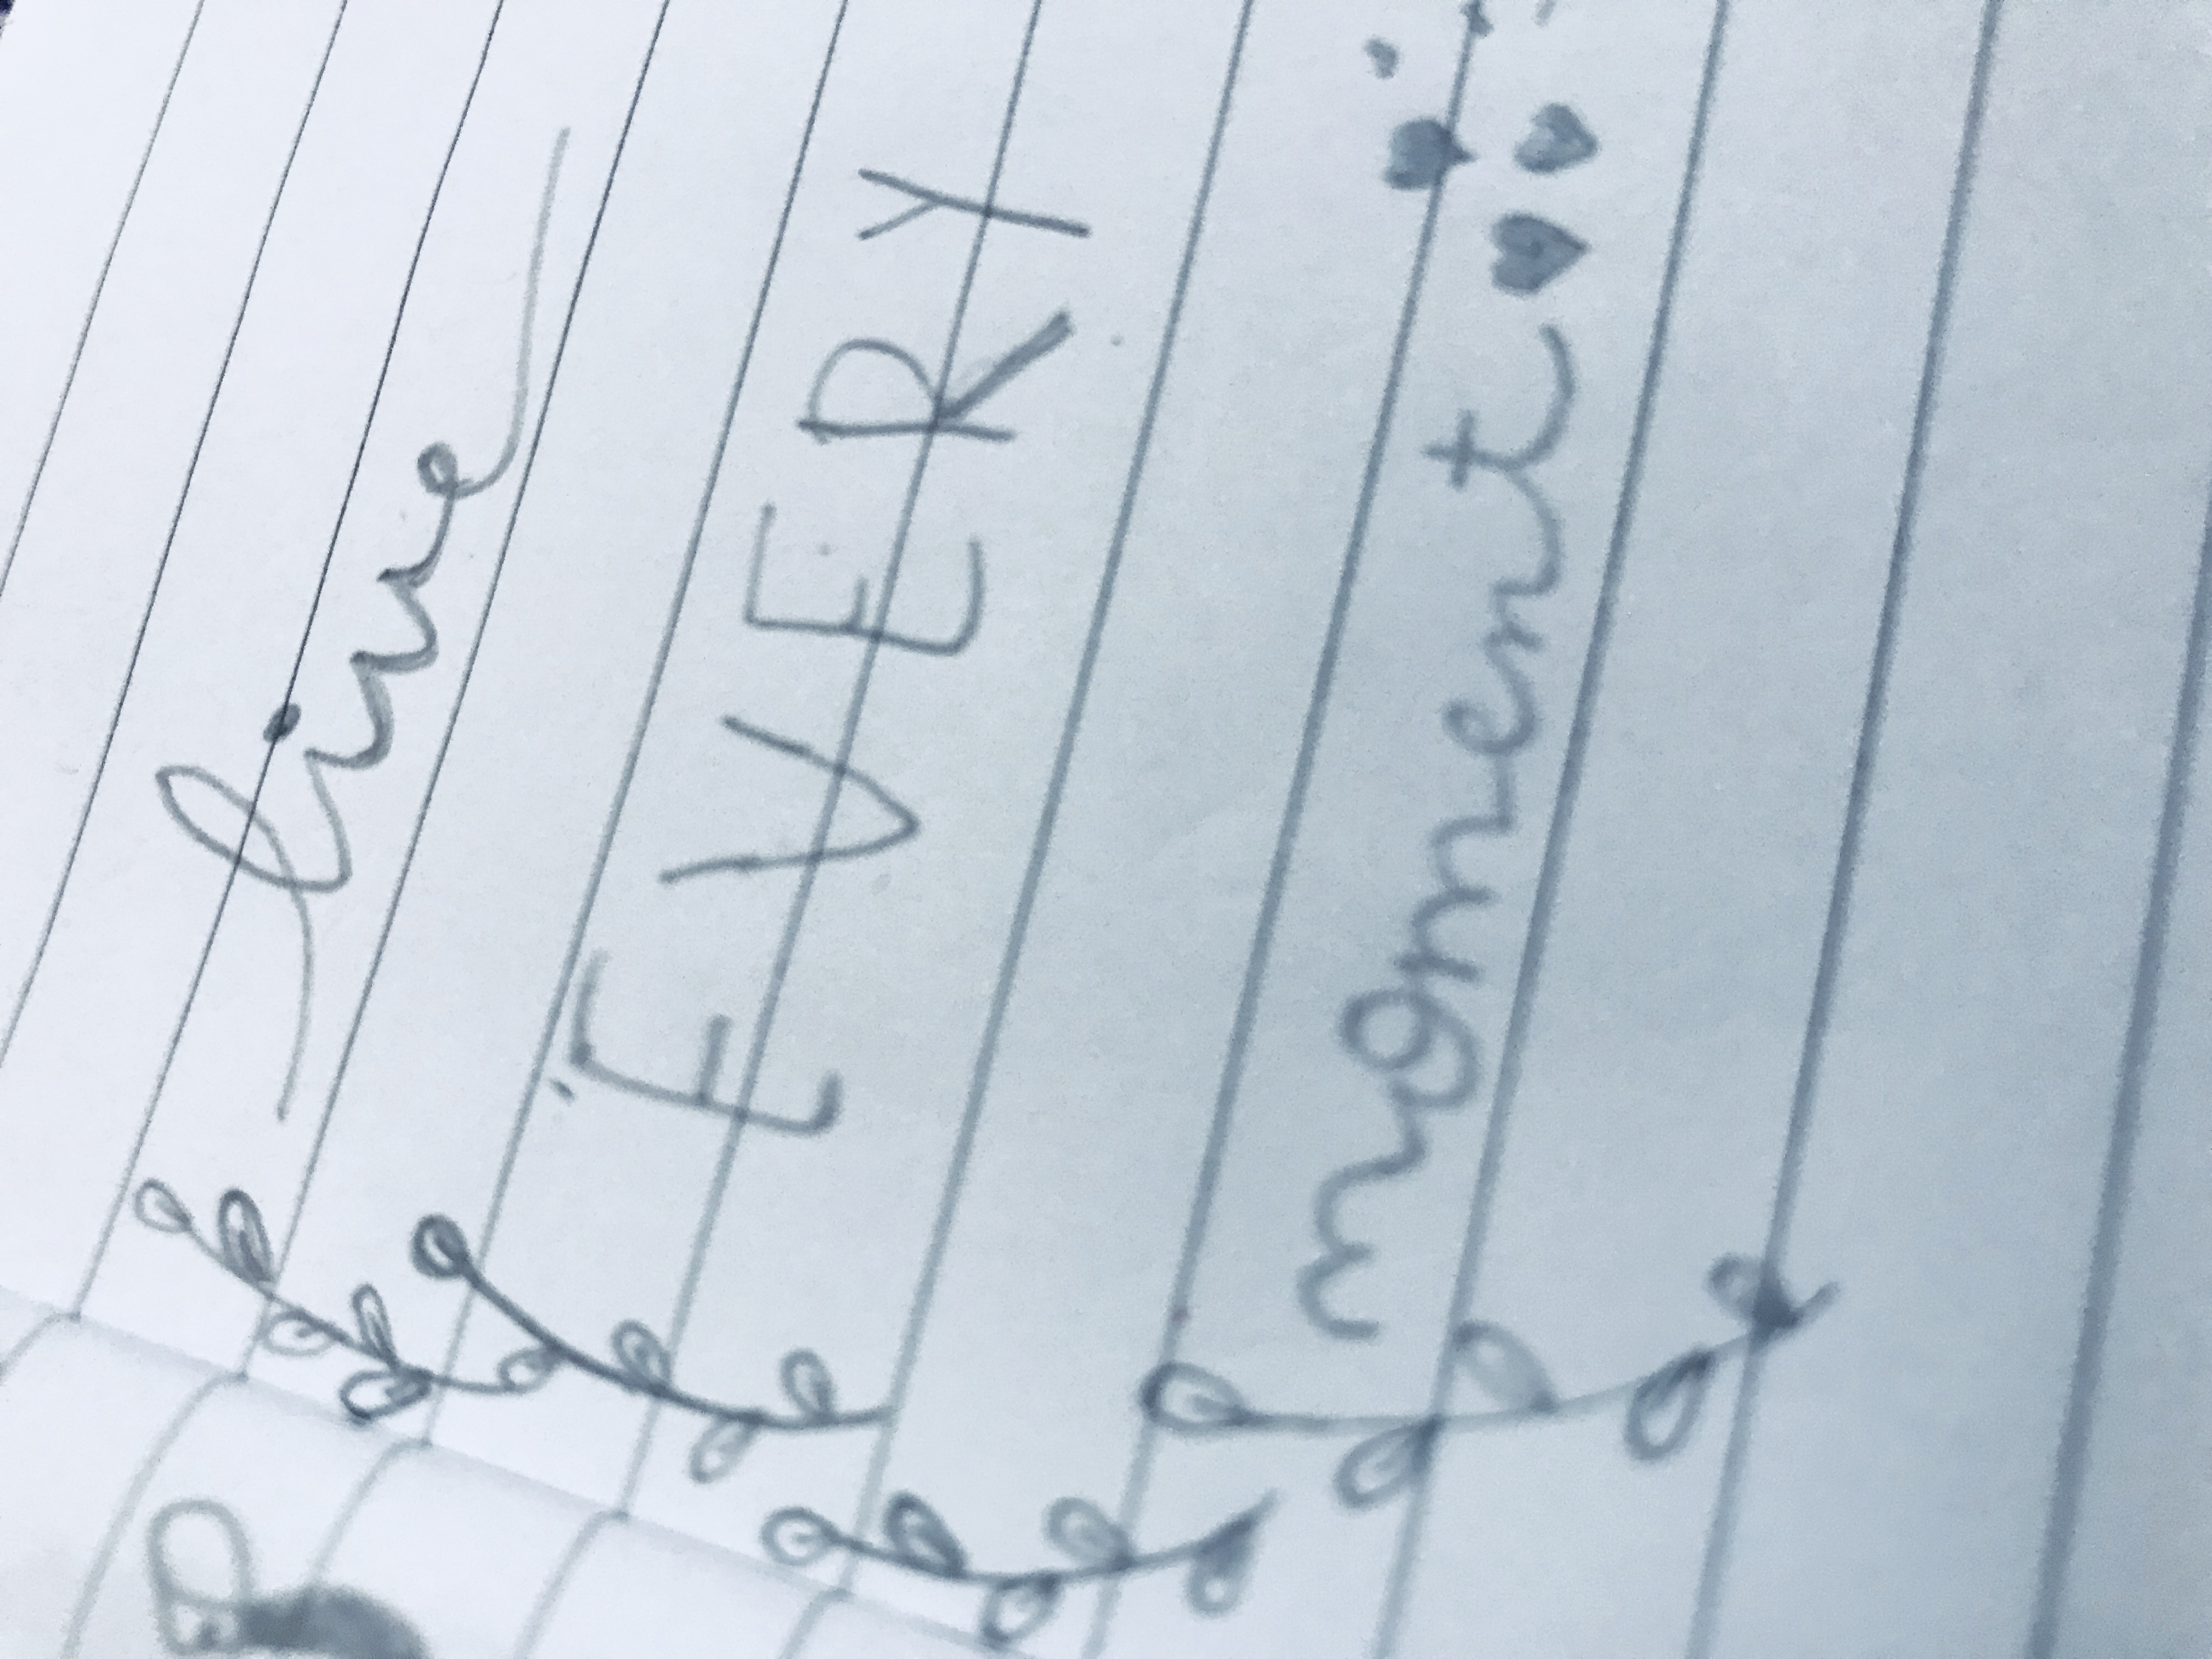 live
EVERY
moment